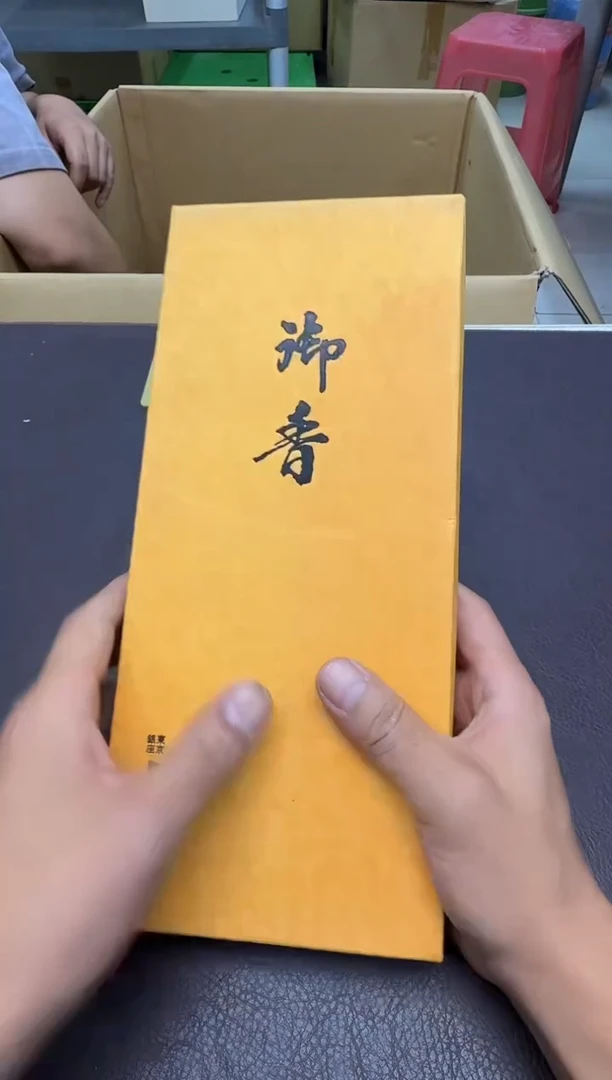 御香
東京
銀座